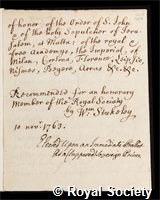 of honor, of the Order of S. John
& of the holy Sepulcher of Jeru-
salem, at Malta: of the royal
free Academys, the Imperial, of
Milan, Cortona, Florence, Leipsic,
Nismes, Arras &c. &c.
Recommended for an honorary
Member of the Royal Society
by Wm. Stukeley
10. novr. 1763.
Elected upon an Immediate Ballot